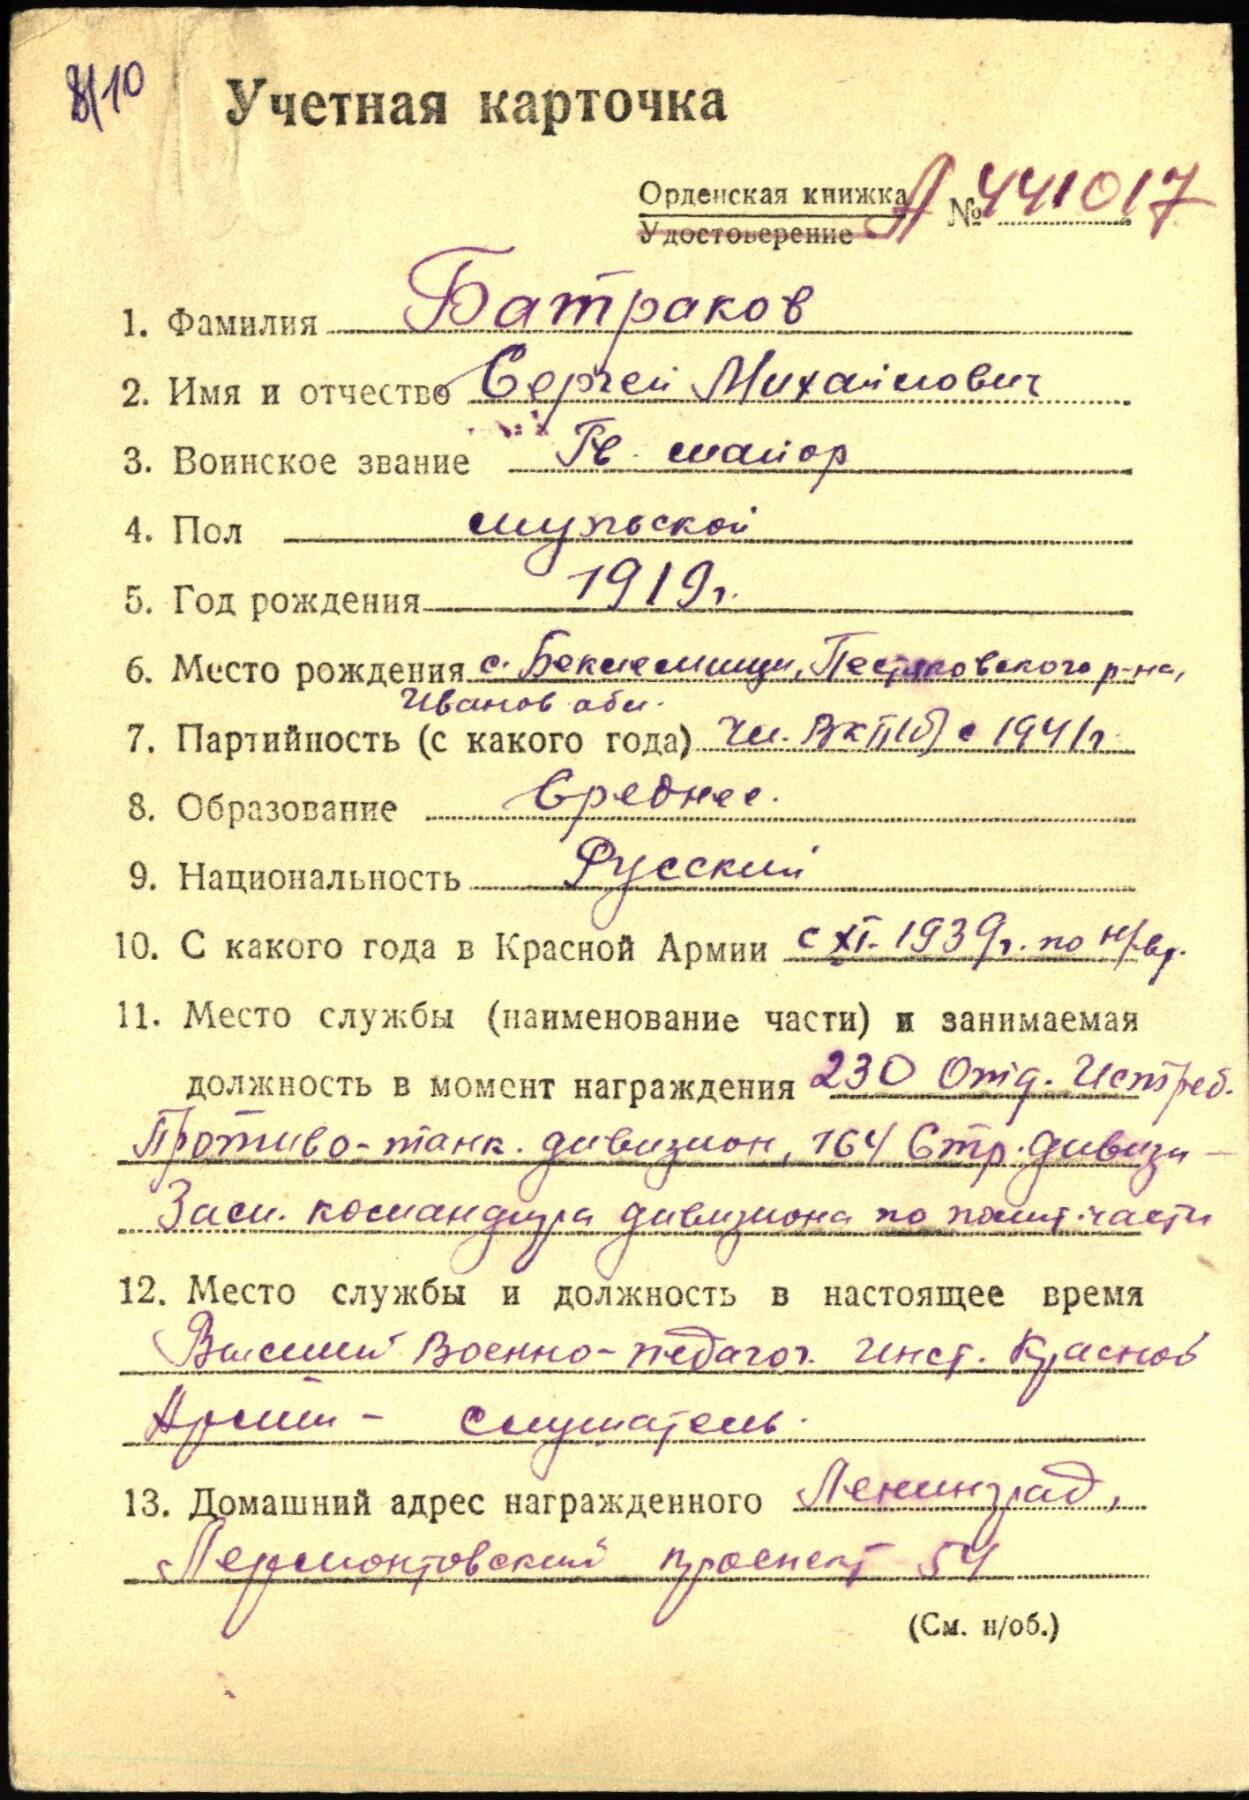 8/10
Учетная карточка
Орденская книжка А № 441017
Удостоверение
1. Фамилия Батраков
2. Имя и отчество Сергей Михайлович
3. Воинское звание Гв. майор
4. Пол мужской
5. Год рождения 1919 г.
6. Место рождения с. Беклемищи, Пестяковского р-на,
Иванов обл.
7. Партийность (с какого года) Чл. ВКП(б) с 1941 г.
8. Образование Среднее.
9. Национальность Русский
10. С какого года в Красной Армии с XI. 1939 г. по н/вр.
11. Место службы (наименование части) и занимаемая
должность в момент награждения 230 Отд. Истреб.
Противо-танк. дивизион, 164 Стр. дивизи -
Зам. командира дивизиона по полит. части
12. Место службы и должность в настоящее время
Высший Военно-педагог. Инст. Красной
Армии - слушатель.
13. Домашний адрес награжденного Ленинград,
Лермонтовский проспект 54
(См. н/об.)